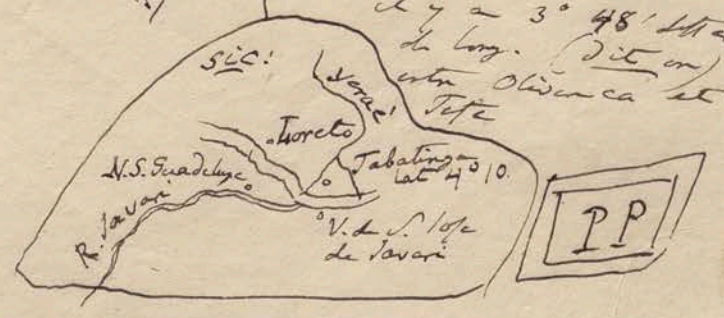 il y a 3° 48'
de long. (dit on)
entre Olivença et
Tefé
sic!
Yerac!
Loreto
N.S. Guadelupe
Tabatinga
lat 4° 10.
R. Javari
V. de S. Jose
de Javari
PP